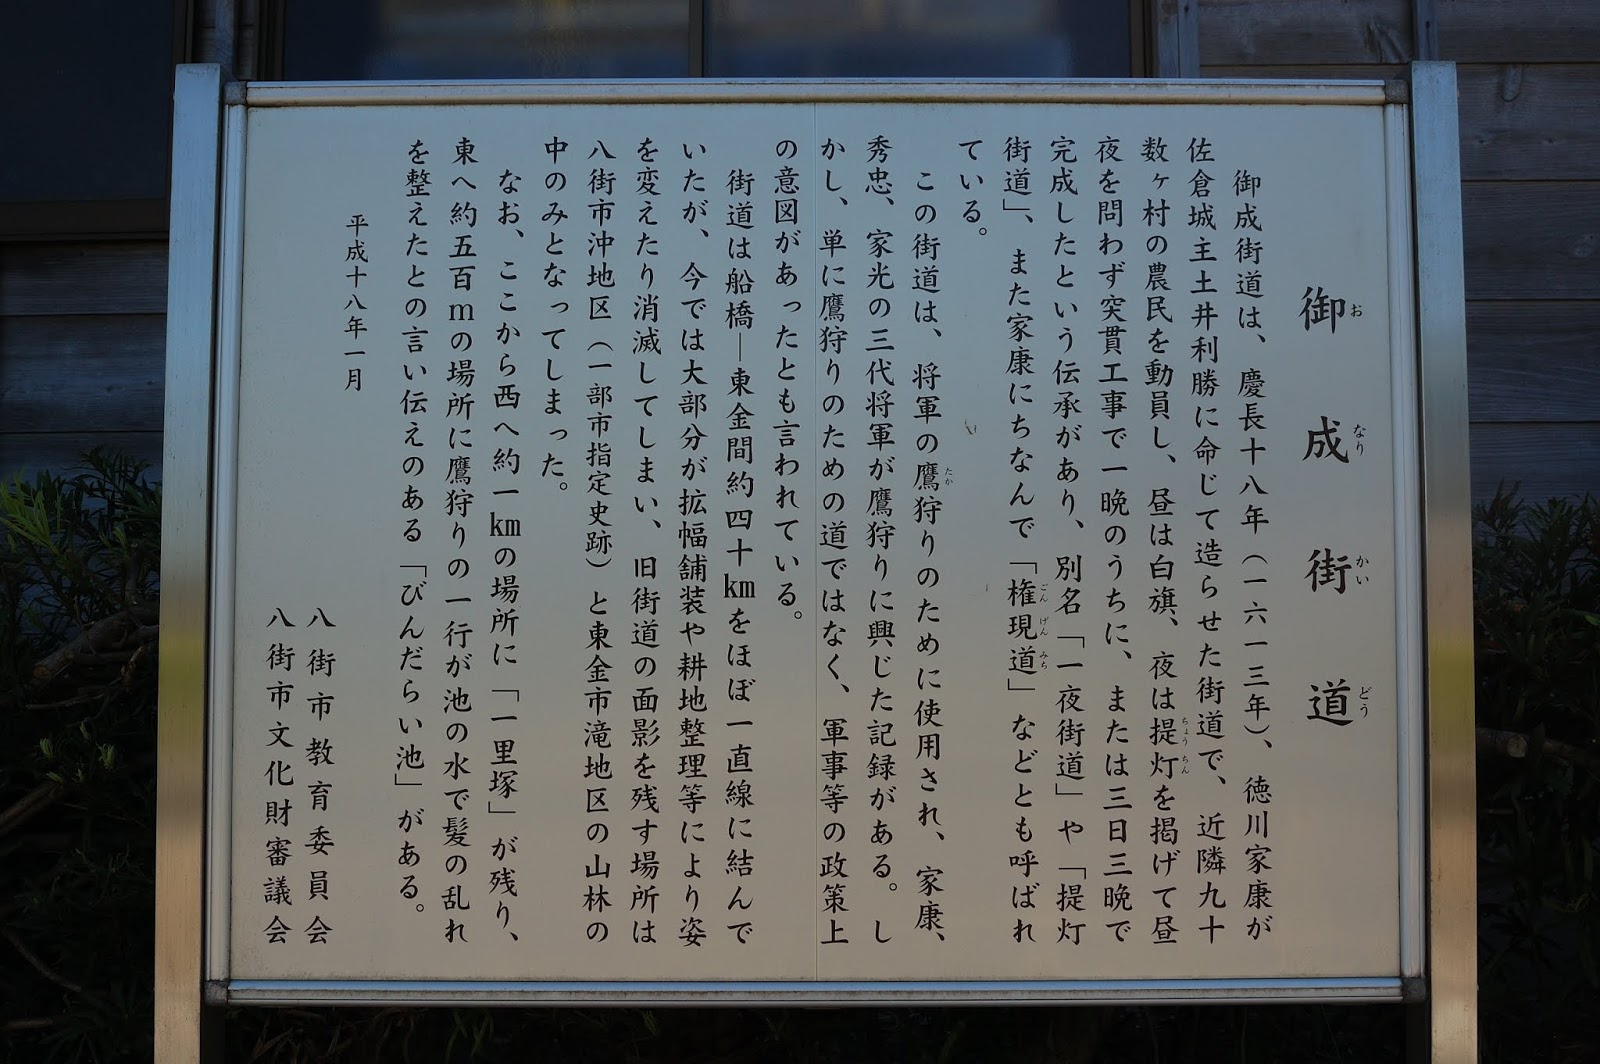 御成街道
おなりかいどう
御成街道は、慶長十八年（一六一三年）、徳川家康が
佐倉城主土井利勝に命じて造らせた街道で、近隣九十
数ヶ村の農民を動員し、昼は白旗、夜は提灯を掲げて昼
ちょうちん
夜を問わず突貫工事で一晩のうちに、または三日三晩で
完成したという伝承があり、別名「一夜街道」や「提灯
街道」、また家康にちなんで「権現道」などとも呼ばれ
ごんげんみち
ている。
この街道は、将軍の鷹狩りのために使用され、家康、
たか
秀忠、家光の三代将軍が鷹狩りに興じた記録がある。し
かし、単に鷹狩りのための道ではなく、軍事等の政策上
の意図があったとも言われている。
街道は船橋―東金間約四十kmをほぼ一直線に結んで
いたが、今では大部分が拡幅舗装や耕地整理等により姿
を変えたり消滅してしまい、旧街道の面影を残す場所は
八街市沖地区（一部市指定史跡）と東金市滝地区の山林の
中のみとなってしまった。
なお、ここから西へ約一kmの場所に「一里塚」が残り、
東へ約五百mの場所に鷹狩りの一行が池の水で髪の乱れ
を整えたとの言い伝えのある「びんだらい池」がある。
平成十八年一月
八街市教育委員会
八街市文化財審議会